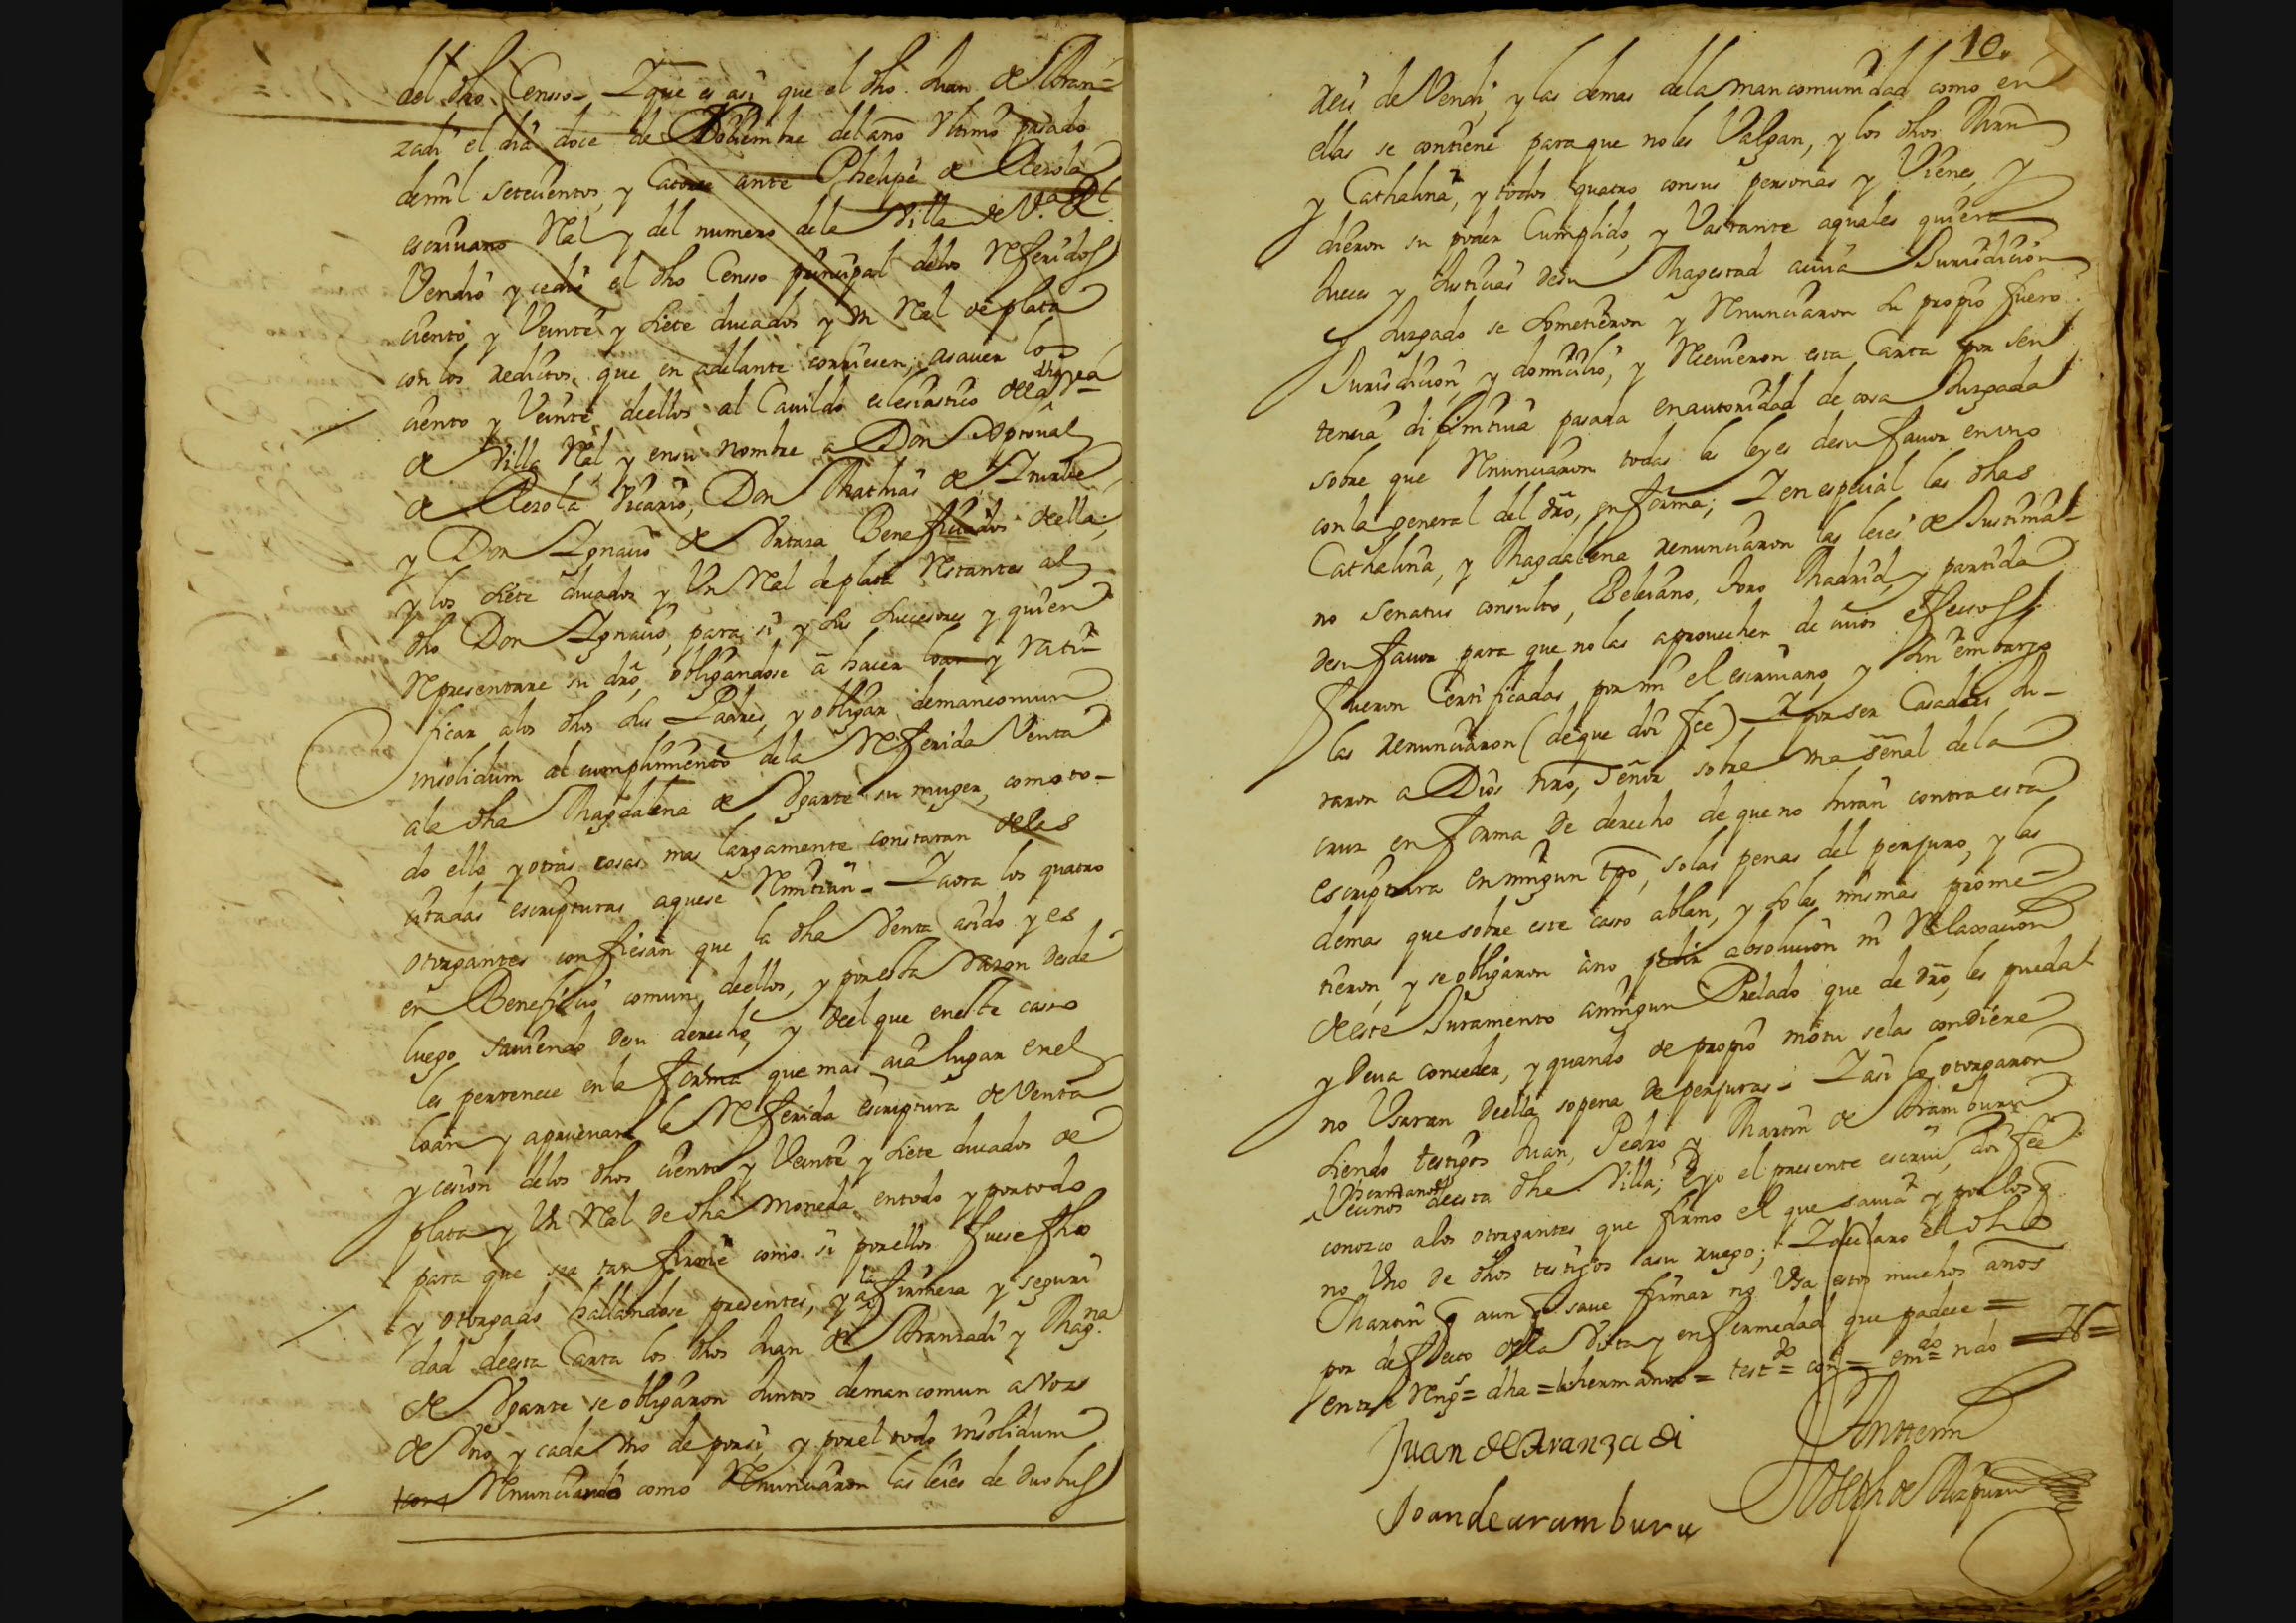 del dho Censso - Y que es asi que el dho Juan de Aran=
zadi el dia doce de Nobiembre del año Vltimo pasado
demil setecientos, y Catorce ante Phelipe de Aerola
escriuano Real y del numero dela Villa de V.ª R.l
Vendio y cedio el dho Censso principal delos Referidos
ciento, y Veinte y siete ducados y vn Real de plata
con los reditos que en adelante corriesen, asauer los
ciento y Veinte deellos al Cauildo eclesiastico dela dha Vª
de Villa Real y ensu nombre a Don
de Aerola Vicario, Don Mathias de Yturbe,
y Don Ygnacio de Beneficiados deella;
y los siete ducados y Vn Real de plata Restantes al
dho Don Ygnacio, para si y sus sucesores y quien
Representare su dro, obligandose a hacer loar y rati-
ficar alos dhos sus Padres, y obligar demancomun
insolidum al cumplimiento dela Referida Venta
ala dha Magdalena de Vgarte su muger, como to-
do ello y otras cosas mas largamente constaran delas
citadas escripturas aquese Remitian - Y aora los quatro
otorgantes confiesan que la dha Venta asido y es
en Beneficio comun deellos, y por esta razon desde
luego sauiendo desu derecho, y deel que eneste casso
les pertenece en la forma que mas aia lugar enel
loan y aprueuan la Referida escriptura de Venta
y cesion delos dhos ciento y Veinte y siete ducados de
plata y Vn Real de dha moneda entodo y portodo
para que sea tan firme como si porellos fuese fho
y otorgado hallandose presentes, y a la firmeza y seguri
dad deesta Carta los dhos Juan de Aranzadi y Mag.na
de Vgarte se obligaron Juntos demancomun a Voz
de Vno y cada vno deporsi, y porel todo insolidum
Renunciando como Renunciaron las leies de duobus
10.
reis de Vendi, y las demas dela mancomunidad como en
ellas se contiene paraque noles Valgan, y los dhos Martin
y Cathalina, y todos quatro consus personas y Vienes,
dieron su poder Cumplido, y Vastante aquales quiera
Jueces y Justicias desu Magestad acuia Jurisdicion
y Juzgado se sometieron y Renunciaron su propio fuero
Jurisdicion, y domicilio, y Reciuieron esta Carta por sen
tencia difinitiua pasada enautoridad de cosa Juzgada
sobre que Renunciaron todas las leyes desu fauor envno
conla general del dro, enforma; Y enespecial las dhas
Cathalina, y Magdalena renunciaron las leies de Justinia-
no Senatus consulto, Beleiano, toro Madrid, y partida
desu fauor para que nolas aprouechen de cuios efectos
fueron Certificadas por mi el escriuano, y sin embargo
las renunciaron (de que doi fee) Y por ser Casadas Ju-
raron a Dios nro, Señor sobre vna señal dela
cruz enforma de derecho de que no Yran contra esta
escriptura enningun tpo, solas penas del perjuro, y las
demas que sobre este casso ablan, y solas mismas prome-
tieron, y se obligaron ano pedir absolucion ni Relaxacion
deeste Juramento aningun Prelado que de dro, les pueda
y deua conceder, y quando de propio motu selas condiere
no Vsaran deella sopena de perjuras - Y asi lo otorgaron
siendo testigos Juan, Pedro y Martin de Aramburu
hermanos
Vecinos deesta dha Villa; Eyo el presente escriuº, doi fee
conozco alos otorgantes que firmo el que sauia y por los q
no Vno de dhos testigos asu ruego; Y declaro el dho
Martin q aun q saue firmar no Vsa estos muchos años
por defecto dela Vista y enfermedad que padece =
entre Rengs = dha = la hermanos = test.do = con = em.do = nado =
Juan de Aranzadi
Joan de aramburu
Anttemi
Joseph de Aizpuru